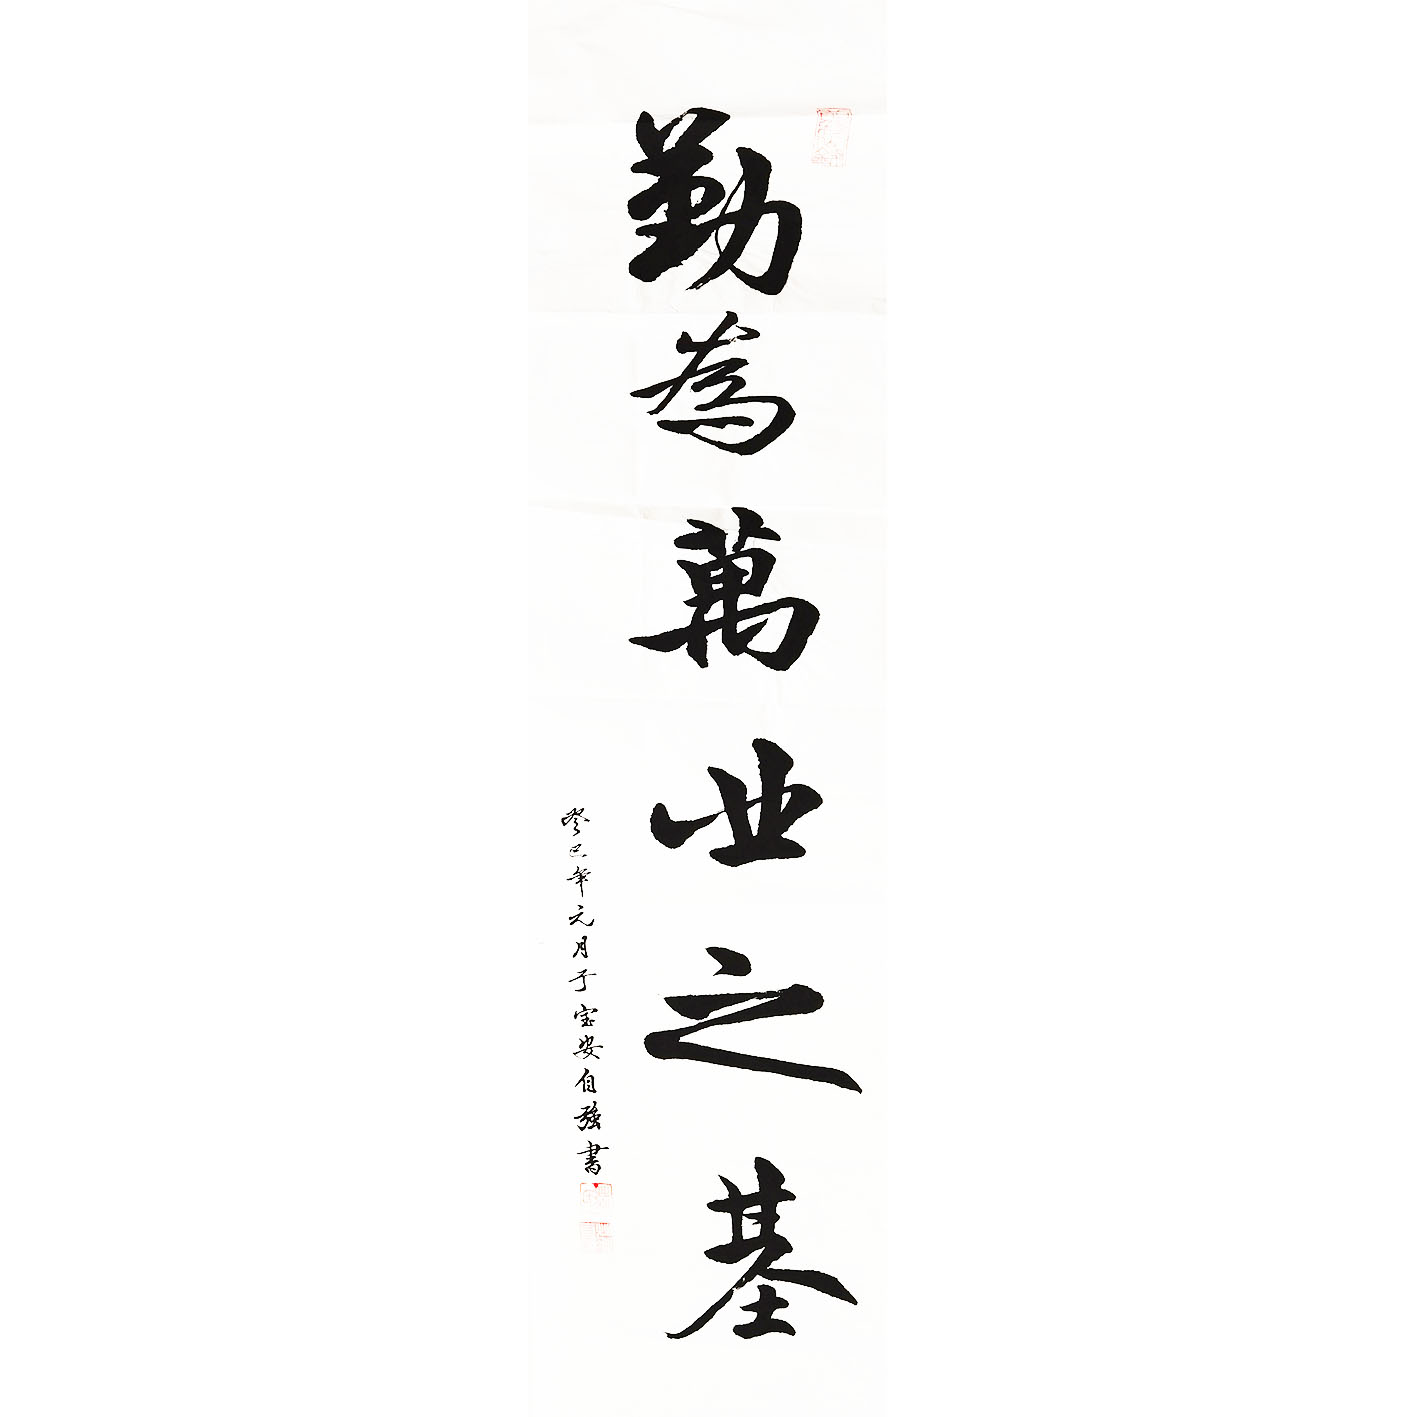 勤為萬业之基
癸巳年元月于宝安自强書